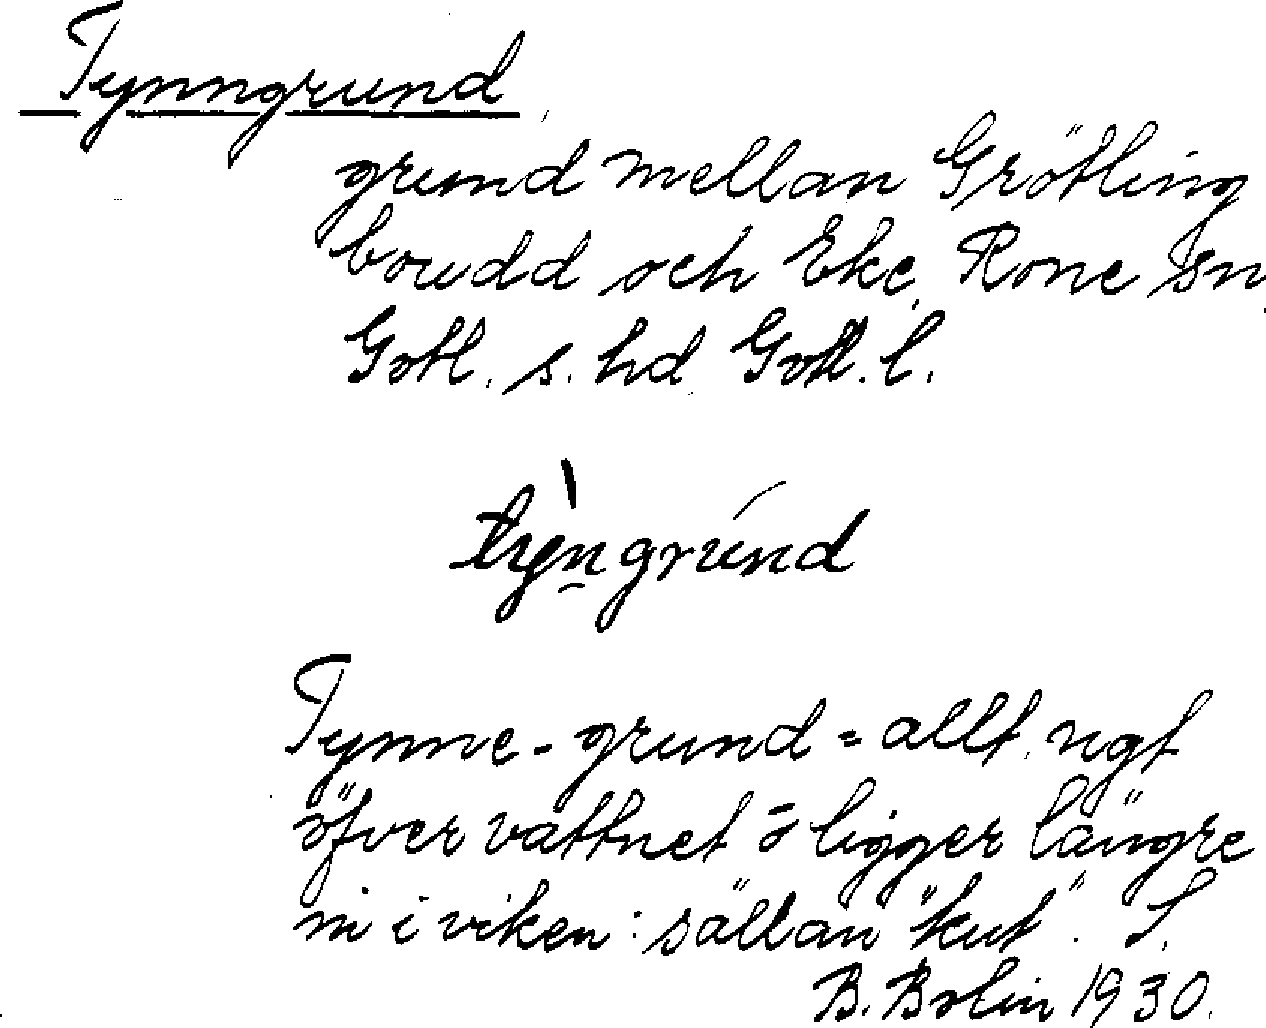 Tynngrund
grund mellan Grötling
boudd och Eke, Rone sn
Gotl. s. hd Gotl. l.
tỳngrúnd
Tynne-grund = allt ugt
öfver vattnet o ligger längre
in i viken: sällan "kut". S.
B. Bolin 1930.